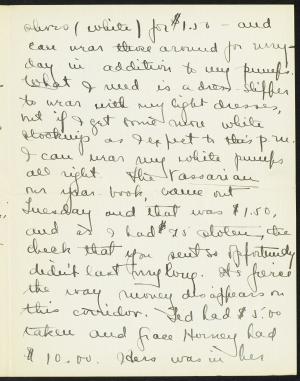 shoes (white) for $1.50 – and
can wear those around for every-
day in addition to my pumps.
What I need is a dress slipper
to wear with my light dresses,
but if I get some more white
stockings as I expect to this p.m.
I can wear my white pumps
all right. The Vassarian
our year-book, came out
Tuesday and that was $1.50,
and as I had $.75 stolen, the
check that you sent so opportunely
didn't last very long. It's fierce
the way money disappears on
this corridor. Ted had $5.00
taken and Grace Horney had
$10.00. Hers was in her